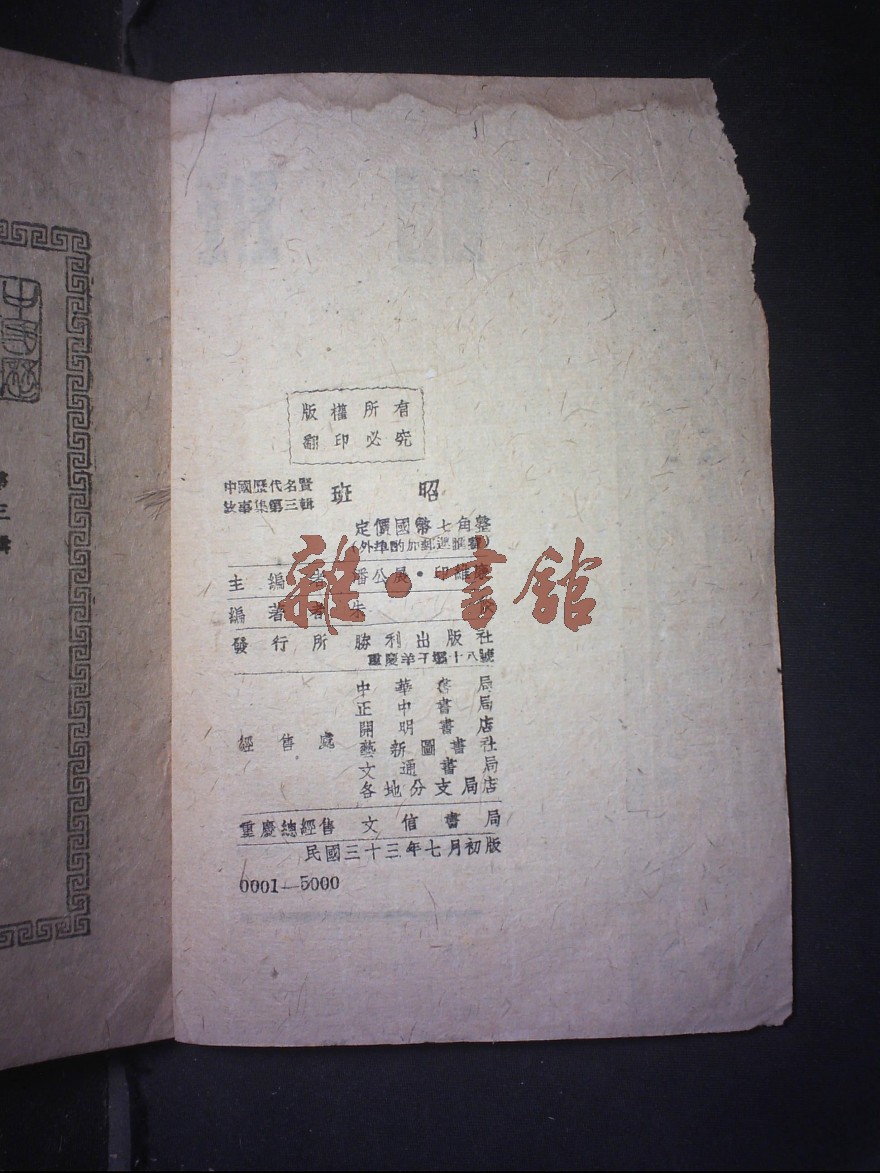 版權所有
翻印必究
中國歷代名賢
故事集第三輯
班昭
定價國幣七角整
(外埠酌加郵運匯費)
主編者 潘公展・印維廉
編著者 朱
發行所 勝利出版社
重慶羊子壩十八號
經售處
中華書局
正中書局
開明書店
藝新圖書社
文通書局
各地分支局店
重慶總經售 文信書局
民國三十三年七月初版
0001—5000
雜・書館
第三輯